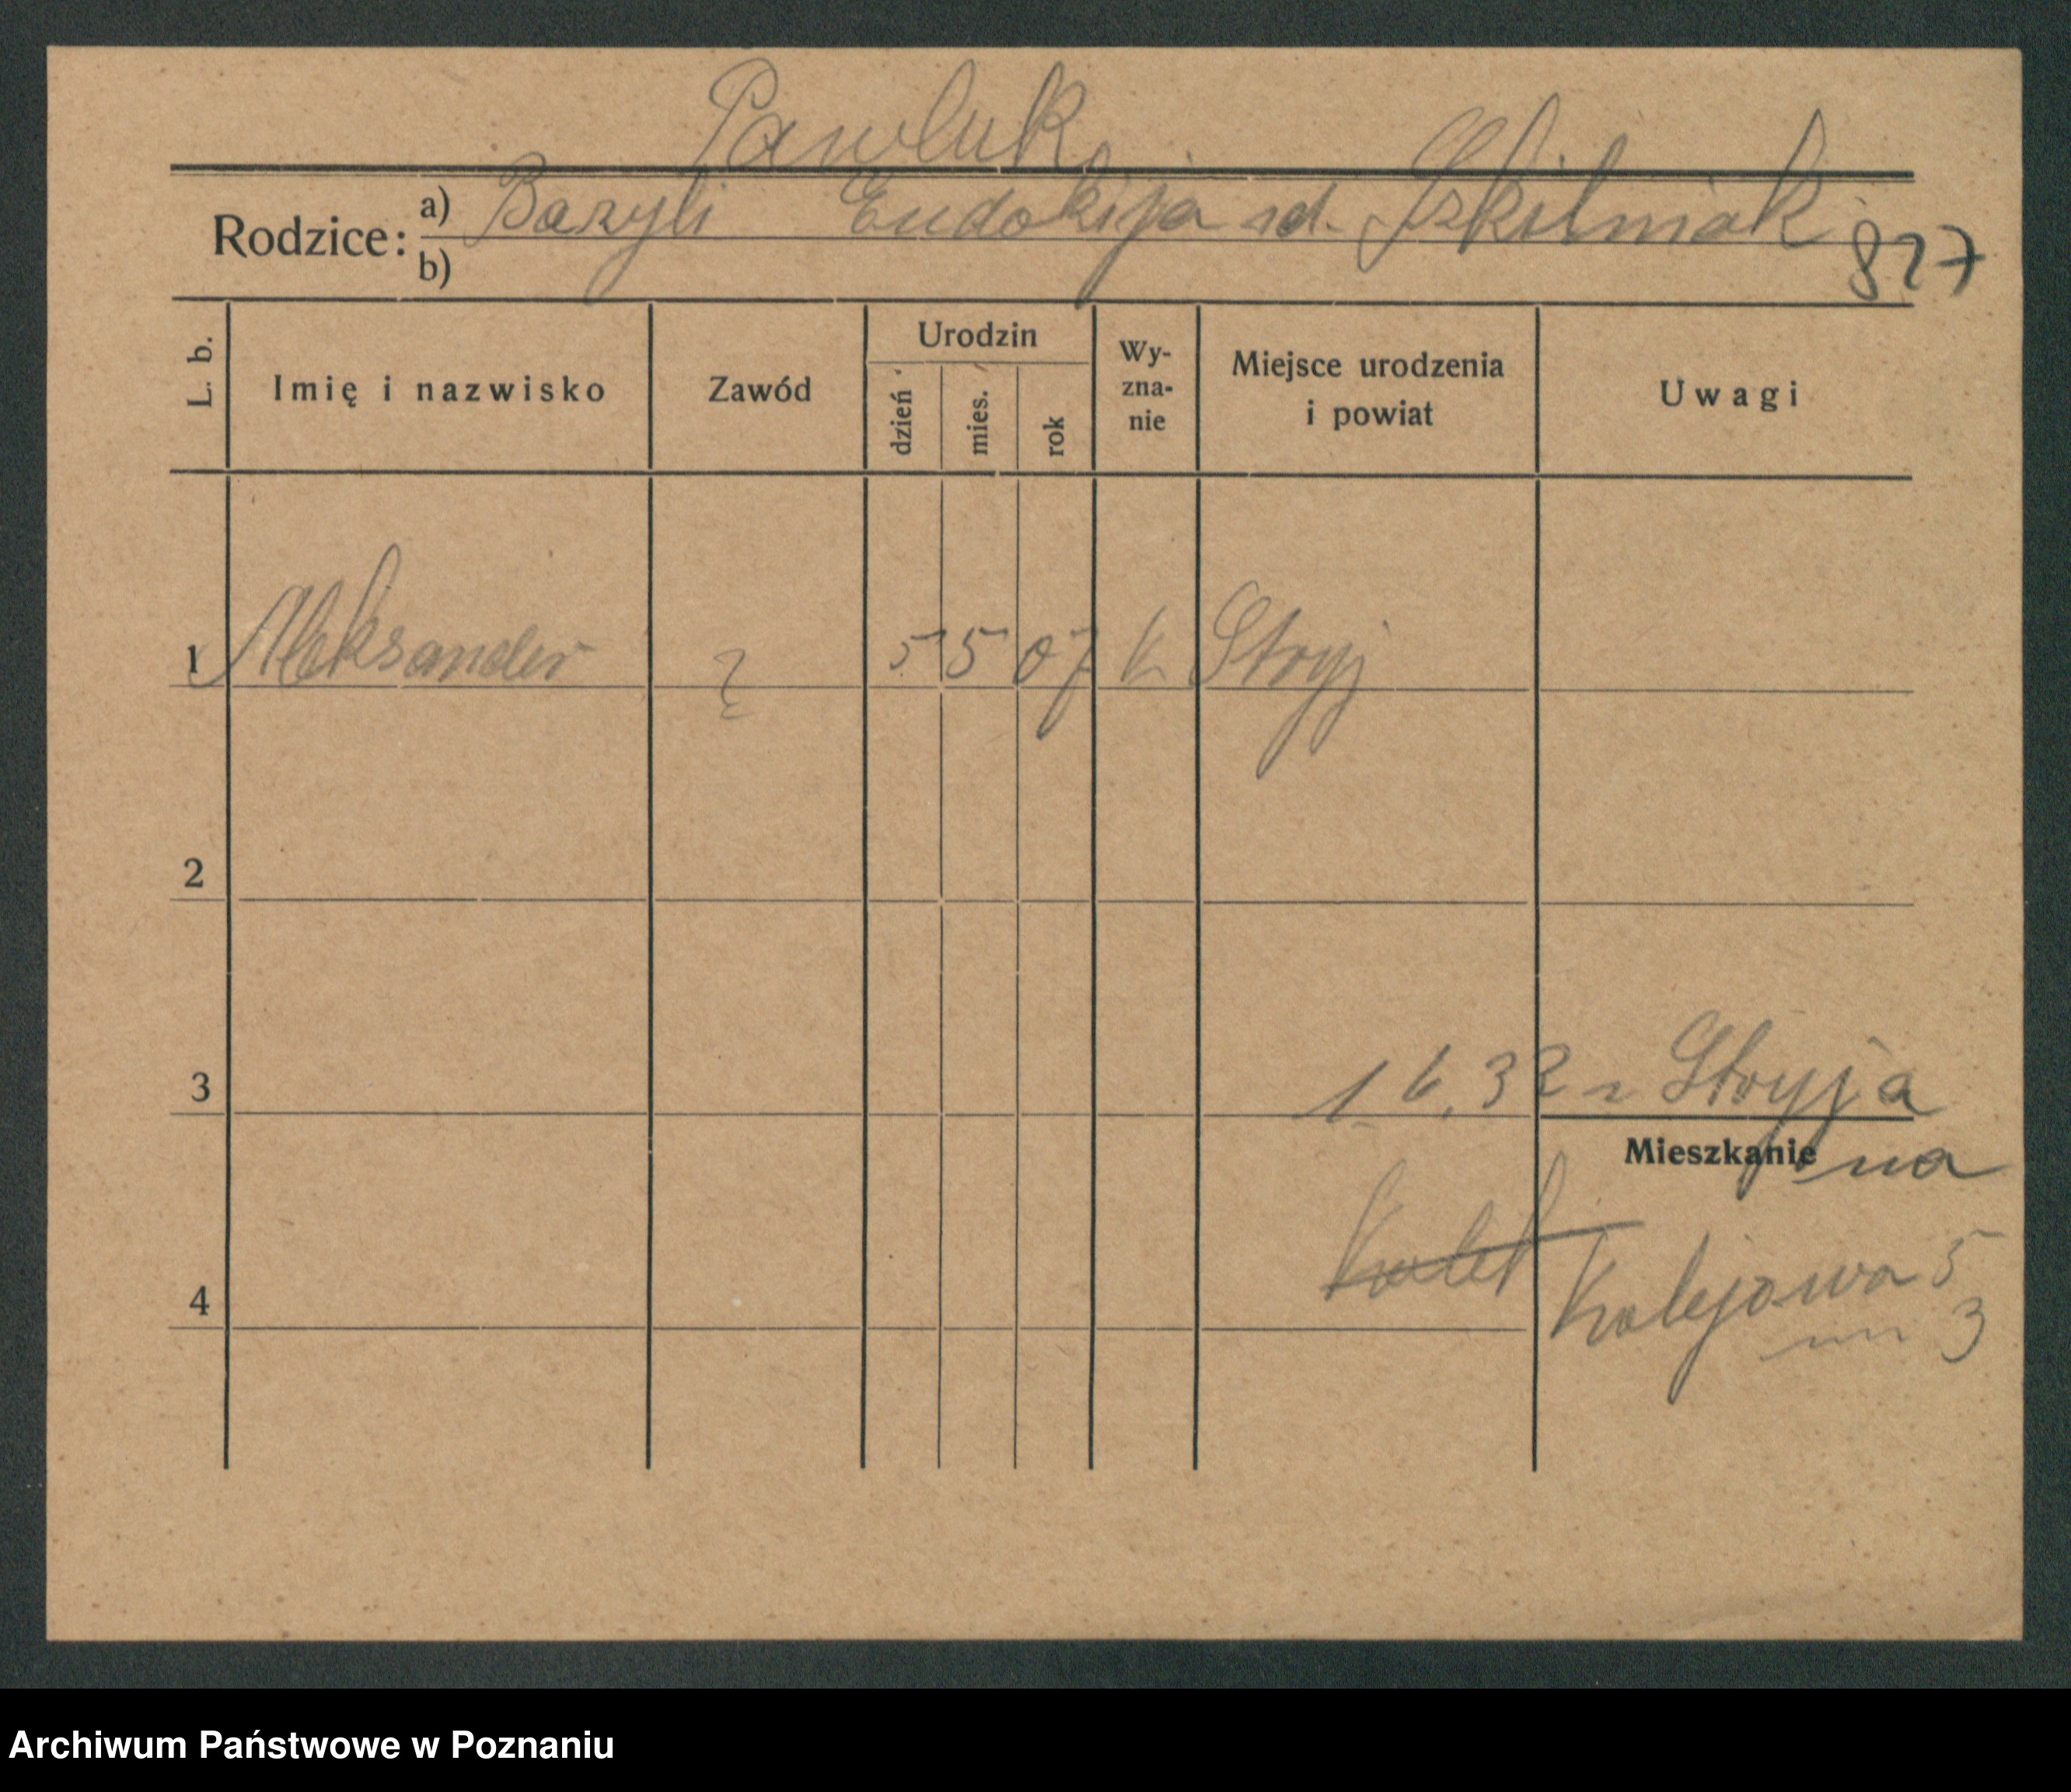 Pawluk
Rodzice: a) Bazyli Eudokija zd. Szkilniak
b)
827
L. b. Imię i nazwisko Zawód Urodzin dzień mies. rok Wy-zna-nie Miejsce urodzenia i powiat Uwagi
1 Aleksander 5 5 07 k Stryj
2
3 1.6.32 z Stryja
Mieszkanie na
Kolej Kolejowa 5
4 m 3
Archiwum Państwowe w Poznaniu